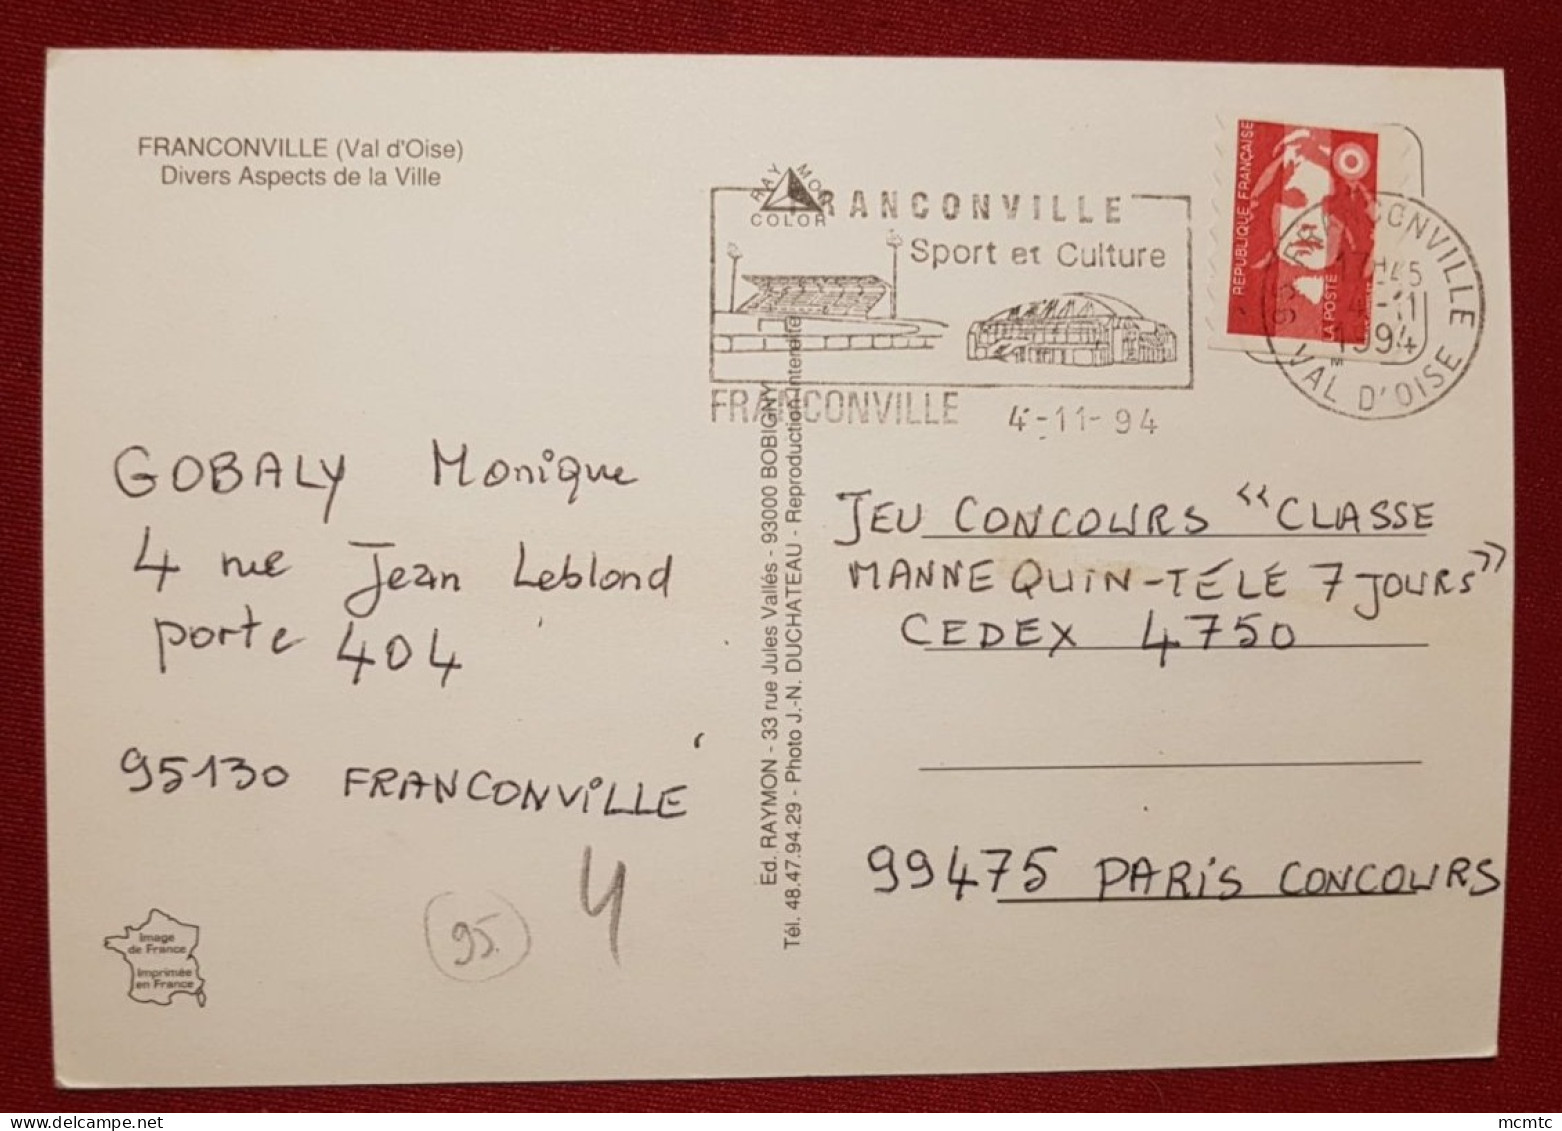 FRANCONVILLE (Val d'Oise)
Divers Aspects de la Ville
RAYMON
COLOR
FRANCONVILLE
Sport et Culture
FRANCONVILLE
4-11-94
REPUBLIQUE FRANÇAISE
LA POSTE
95 FRANCONVILLE
17H45
4-11
1994
VAL D'OISE
GOBALY Monique
4 rue Jean Leblond
porte 404
95130 FRANCONVILLE
4
95.
Image
de France
Imprimée
en France
Ed. RAYMON - 33 rue Jules Vallés - 93000 BOBIGNY
Tél. 48.47.94.29 - Photo J.-N. DUCHATEAU - Reproduction interdite
JEU CONCOURS "CLASSE
MANNEQUIN-TÉLÉ 7 JOURS"
CEDEX 4750
99475 PARIS CONCOURS
mcmtc